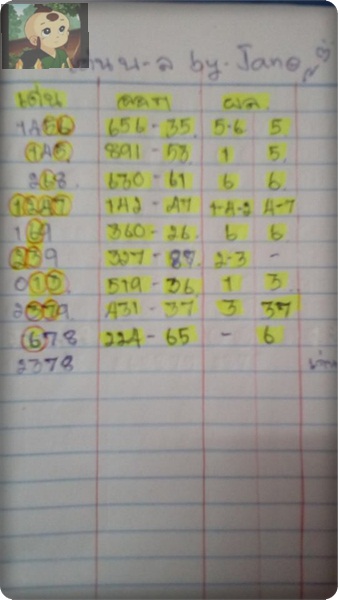 เด่นบน-ล by-Jane
เด่น ออก ผล
1456 656-35 5-6 5
145 891-53 1 5
268 630-61 6 6
1247 142-47 1-4-2 4-7
169 360-26 6 6
239 327-87 2-3 -
013 519-36 1 3
2379 431-37 3 37
678 224-65 - 6
2378